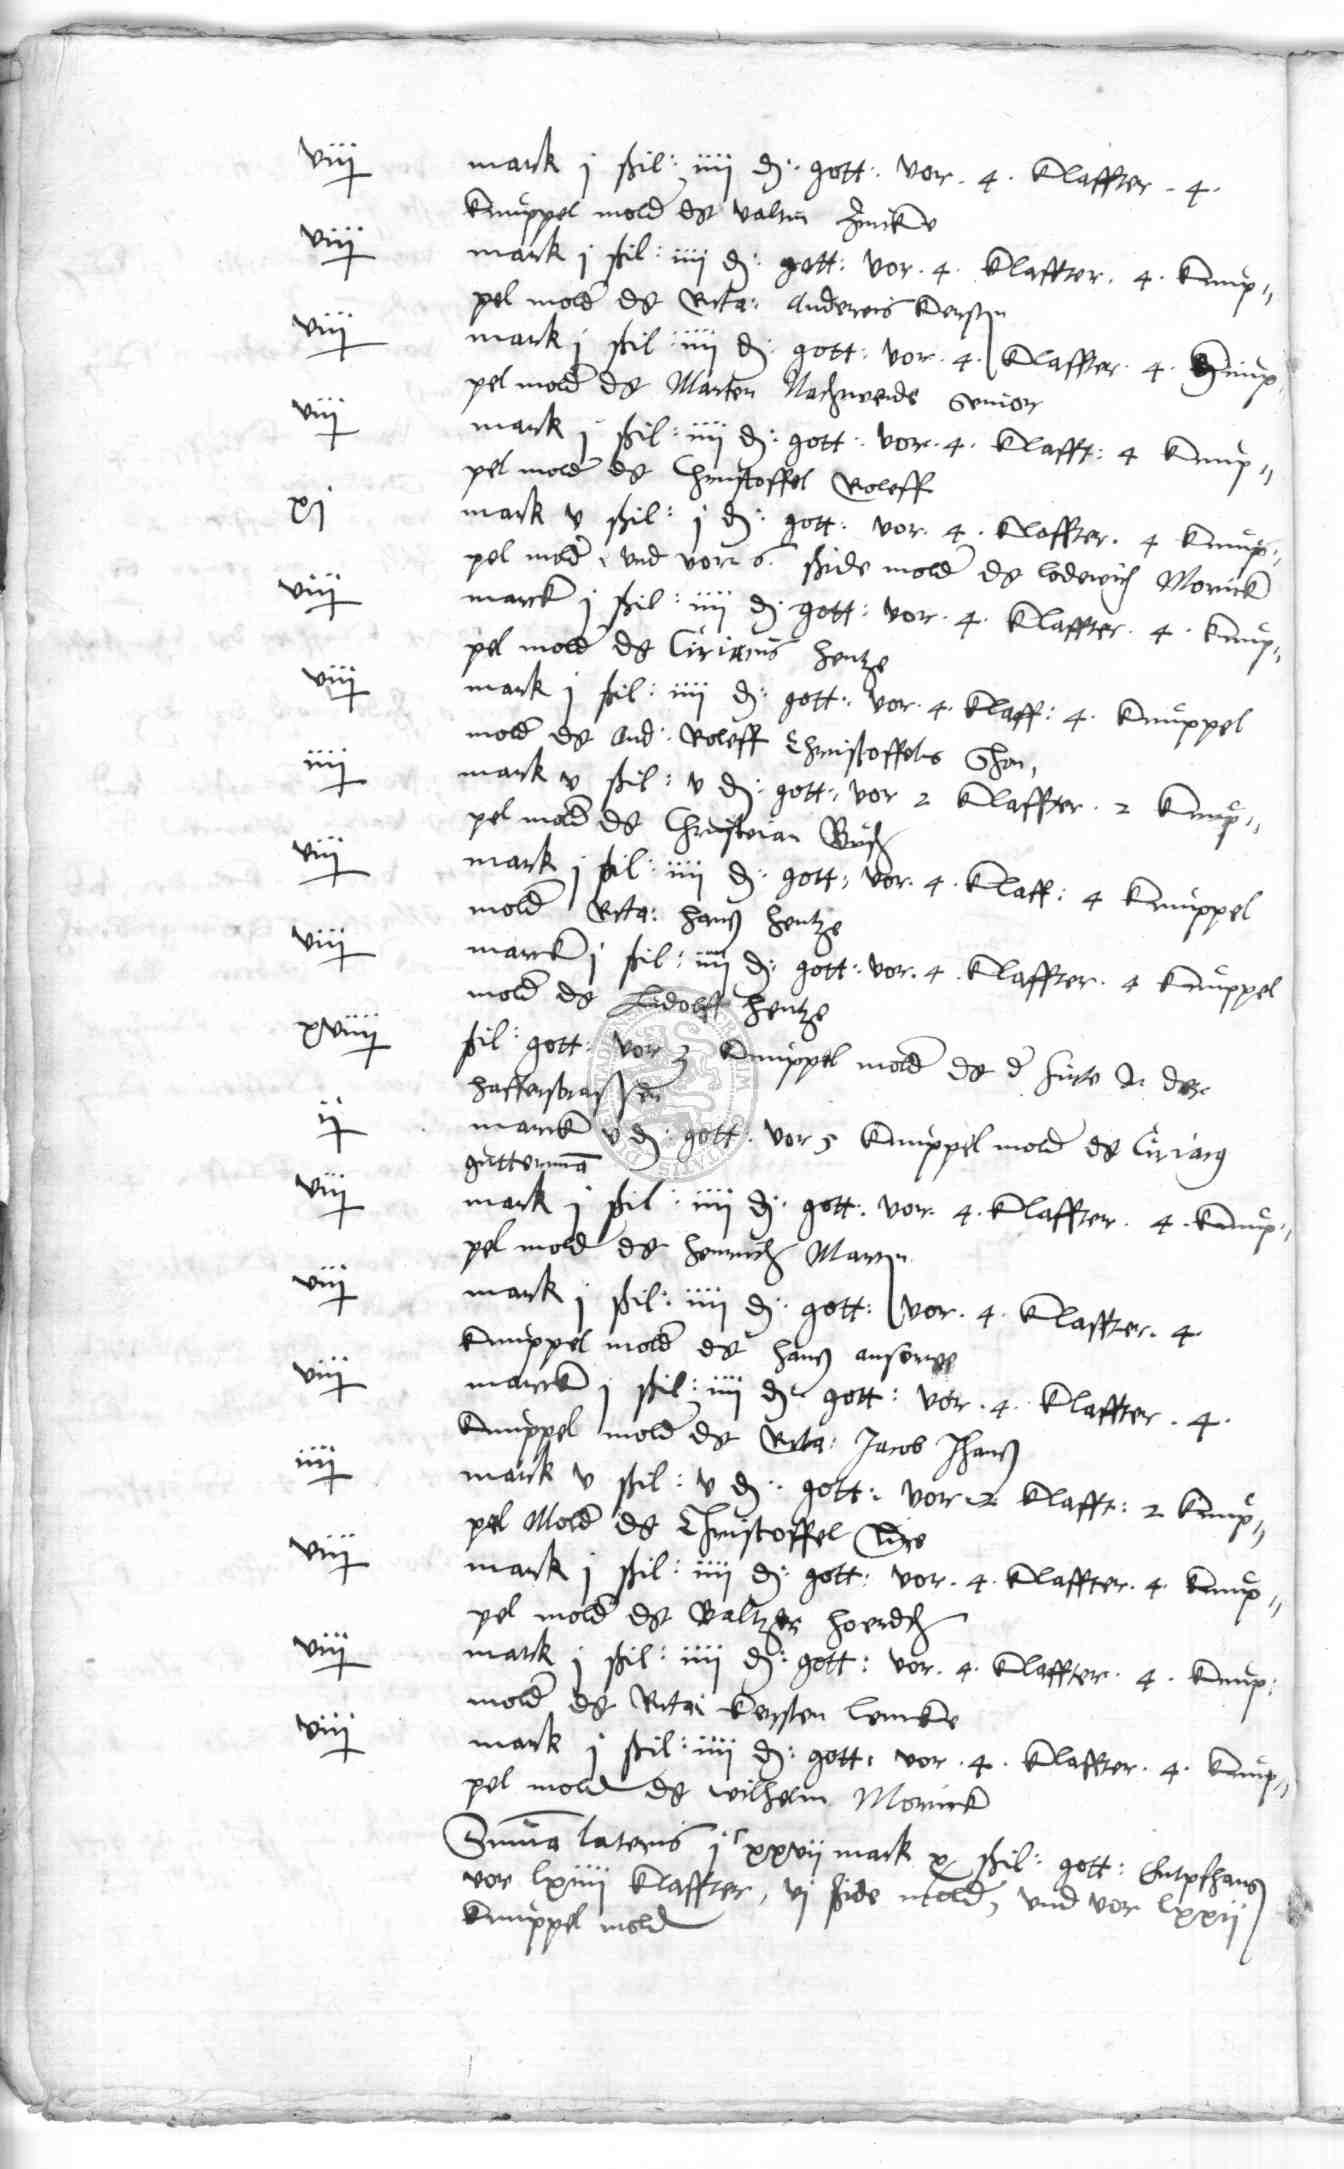 viij mark j ßil: iiij d: gott: vor. 4. Klaffter. 4.
Knuppel mold ds valtin Zencke
viij mark j ßil: iiij d: gott: vor. 4. Klaffter. 4. Knup„
pel mold ds Rta: Andereis Kersten
viij mark j ßil: iiij d: gott: vor. 4. Klaffter. 4. Knup„
pel mold ds Marten Senior
viij mark j ßil: iiij d: gott: vor. 4. Klafft: 4 Knup„
pel mold ds Christoffel Roleff
xj mark v ßil: j d: gott: vor. 4. Klaffter. 4 Knup„
pel mold, vnd vor 6. ßide mold ds lodewich Morinck
viij marck j ßil: iiij d: gott: vor. 4. Klaffter. 4. Knup„
pel mold ds Ciriacus Hentze
viij mark j ßil: iiij d: gott: vor. 4. Klaff: 4. Knuppel
mold ds And: Roleff Christoffels
iiij mark v ßil: v d: gott: vor 2 Klaffter. 2 Knup„
pel mold ds Christian
viij mark j ßil: iiij d: gott: vor. 4. Klaff: 4 Knuppel
mold Rta: Hans Hentze
viij marck j ßil: iiij d: gott: vor. 4. Klaffter. 4 Knuppel
mold ds Ludolff Hentze
xviiij ßil: gott: vor 3 Knuppel mold ds d in der

ij marck v d: gott: vor 5 Knuppel mold ds Ciriacus
gutterman
viij mark j ßil: iiij d: gott: vor. 4. Klaffter. 4. Knup„
pel mold ds Henrich Marten
viij mark j ßil: iiij d: gott: vor. 4. Klaffter. 4.
Knuppel mold ds Hans
viij marck j ßil: iiij d: gott: vor. 4. Klaffter. 4.
Knuppel mold ds Rta: Jacob Jhans
iiij mark v ßil: v d: gott: vor 2. Klafft: 2 Knup„
pel Mold ds Christoffel
viij mark j ßil: iiij d: gott: vor. 4. Klaffter. 4. Knup„
pel mold ds Baltzer
viij mark j ßil: iiij d: gott: vor. 4. Klaffter. 4. Knup:
mold ds Rta: Kersten Lencke
viij mark j ßil: iiij d: gott: vor. 4. Klaffter. 4. Knup„
pel mold ds wilhelm Morinck
Summa lateris jc xxvij mark x ßil: gott:
vor lxiiij Klaffter, vj ßide mold, vnd vor lxxij
Knuppel mold